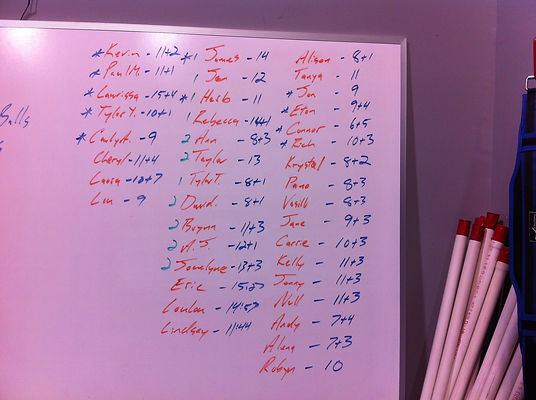 Balls
* Kevin - 11+2
* Paul M. - 11+1
* Laurissa - 15+4
* Tyler Y. - 10+1
* Carly A. - 9
Cheryl - 11+4
Laura - 10+7
Lin - 9
*1 James - 14
1 Jen - 12
*1 Herb - 11
1 Rebecca - 14+1
2 Alan - 8+3
2 Taylor - 13
1 Tyler T. - 8+1
2 David. - 8+1
2 Brynn - 11+3
2 A.J. - 12+1
2 Jocelyne - 13+3
Eric - 15:27
London - 14:57
Lindsay - 11:44
Alison - 8+1
Tanya - 11
* Jon - 9
* Eton - 9+4
* Connor - 6+5
* Rich - 10+3
Krystal - 8+2
Pano - 8+3
Vasili - 8+3
Jane - 9+3
Carrie - 10+3
Kelly - 11+3
Jonny - 11+3
Null - 11+3
Andy - 7+4
Alena - 7+3
Robyn - 10